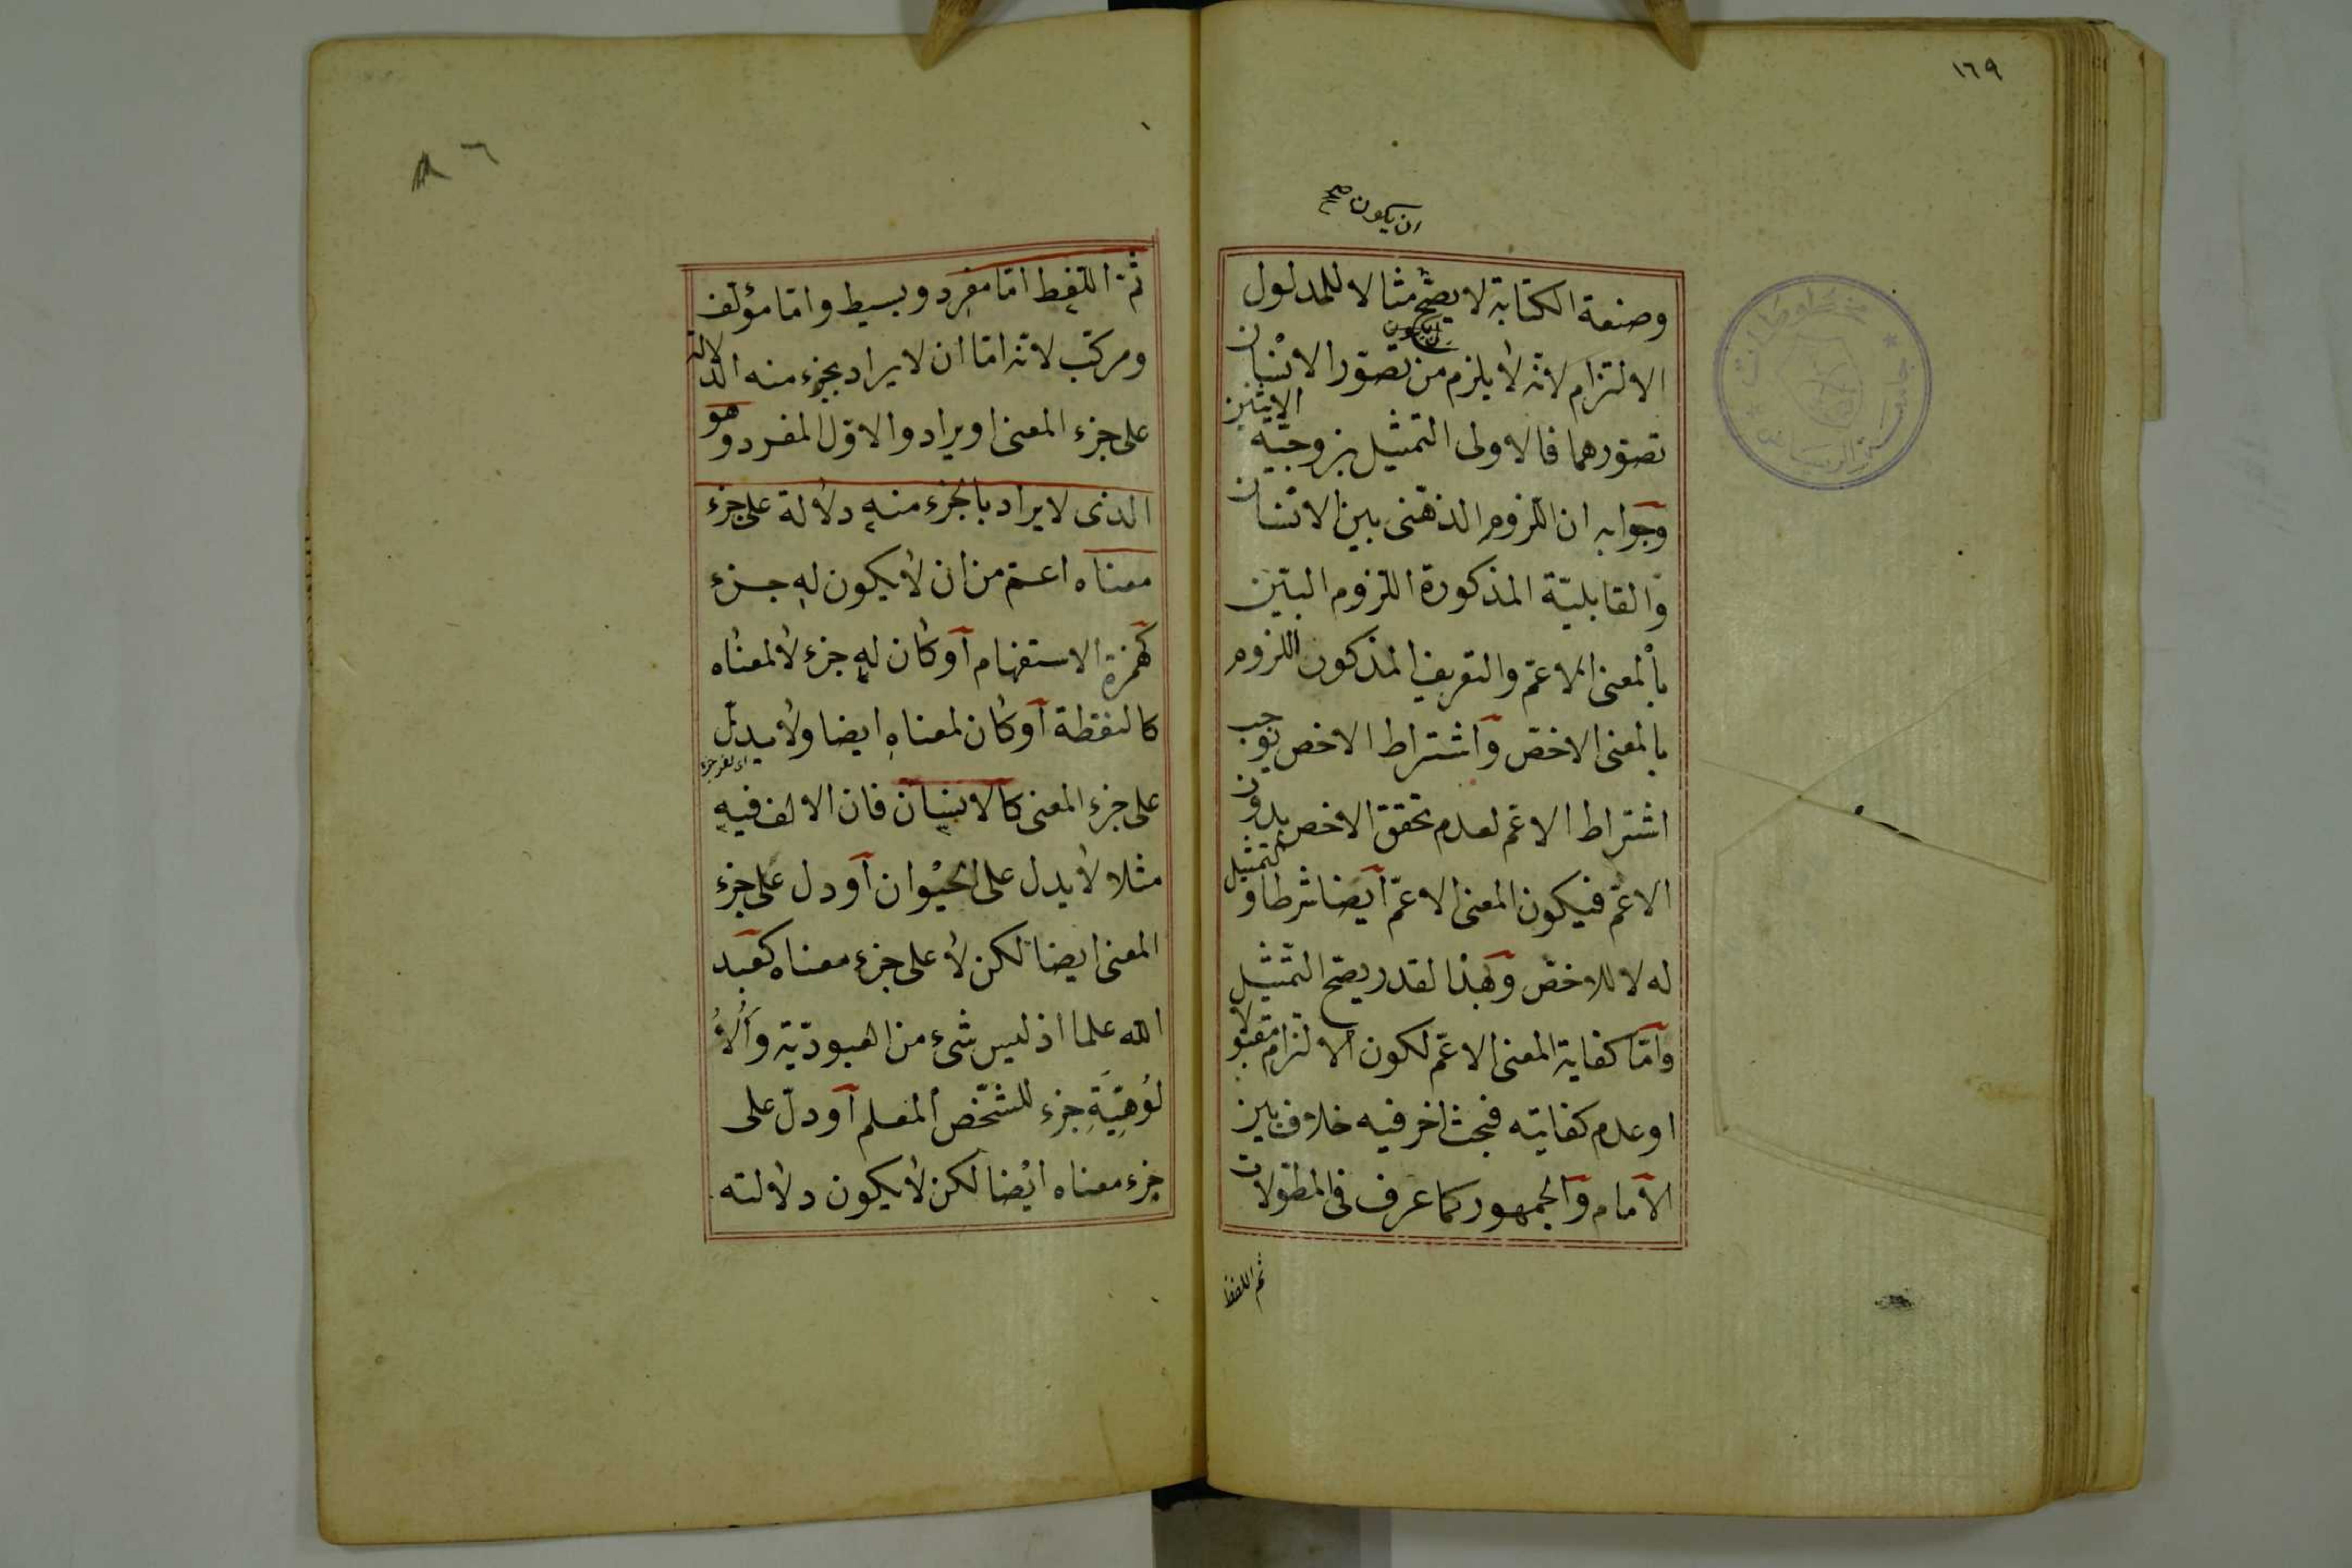 ١٦٩
ان يكون صح
وصنعة الكتابة لا يصح مثالا للمدلول
الالتزام لانه لا يلزم من تصور الانسان
تصورهما فالاولى التمثيل بزوجية الاثنين
وجوابه ان اللزوم الذهنى بين الانسان
والقابلية المذكورة اللزوم البين
بالمعنى الاعم والتعريف المذكور اللزوم
بالمعنى الاخص واشتراط الاخص يوجب
اشتراط الاعم لعدم تحقق الاخص بدون
الاعم فيكون المعنى الاعم ايضا شرطا والتمثيل
له لا للاخص وهذا لقدر يصح التمثيل
واما كفاية المعنى الاعم لكون الالتزام مقبولا
او عدم كفايته فبحث اخر فيه خلاف بين
الامام والجمهور كما عرف فى المطولات
ثم اللفظ
ثم اللفظ اما مفرد وبسيط واما مؤلف
ومركب لانه اما ان لا يراد بجزء منه الدلالة
على جزء المعنى او يراد والاول المفرد وهو
الذى لا يراد بالجزء منه دلالة على جزء
معناه اعم من ان لا يكون له جزء
كهمزة الاستفهام او كان له جزء لا لمعناه
كالنقطة او كان لمعناه ايضا ولا يدل
على جزء المعنى كالانسان فان الالف فيه
مثلا لا يدل على الحيوان او دل على جزء
المعنى ايضا لكن لا على جزء معناه كعبد
الله علما اذ ليس شىء من العبودية والا
لوهية جزء للشخص المعلم او دل على
جزء معناه ايضا لكن لا يكون دلالته